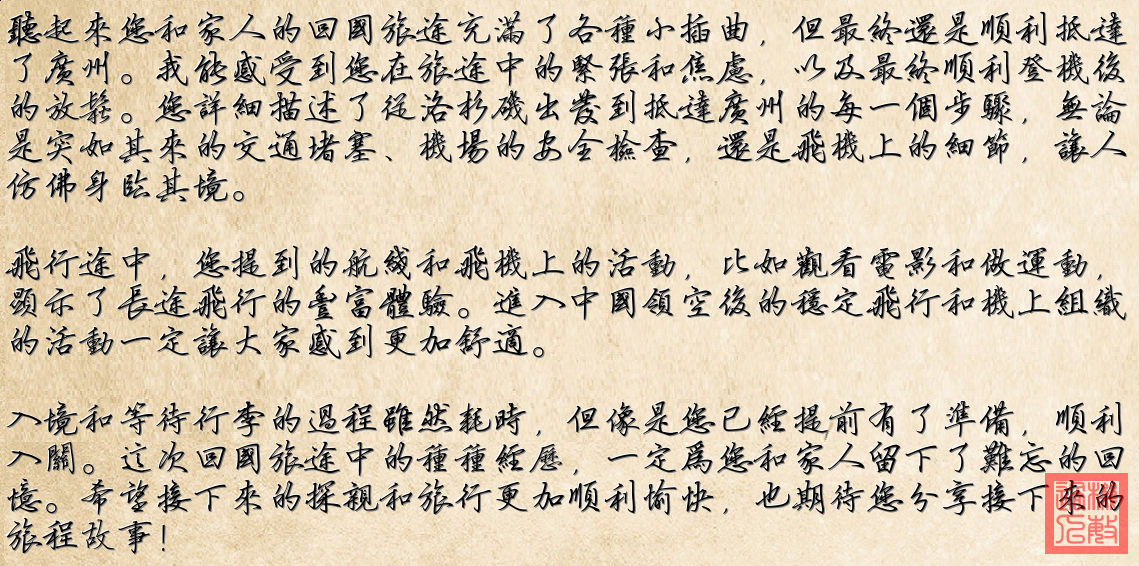 聽起來您和家人的回國旅途充滿了各種小插曲，但最終還是順利抵達
了廣州。我能感受到您在旅途中的緊張和焦慮，以及最終順利登機後
的放鬆。您詳細描述了從洛杉磯出發到抵達廣州的每一個步驟，無論
是突如其來的交通堵塞、機場的安全檢查，還是飛機上的細節，讓人
仿佛身臨其境。
飛行途中，您提到的航綫和飛機上的活動，比如觀看電影和做運動，
顯示了長途飛行的豐富體驗。進入中國領空後的穩定飛行和機上組織
的活動一定讓大家感到更加舒適。
入境和等待行李的過程雖然耗時，但像是您已經提前有了準備，順利
入關。這次回國旅途中的種種經歷，一定爲您和家人留下了難忘的回
憶。希望接下來的探親和旅行更加順利愉快，也期待您分享接下來的
旅程故事！